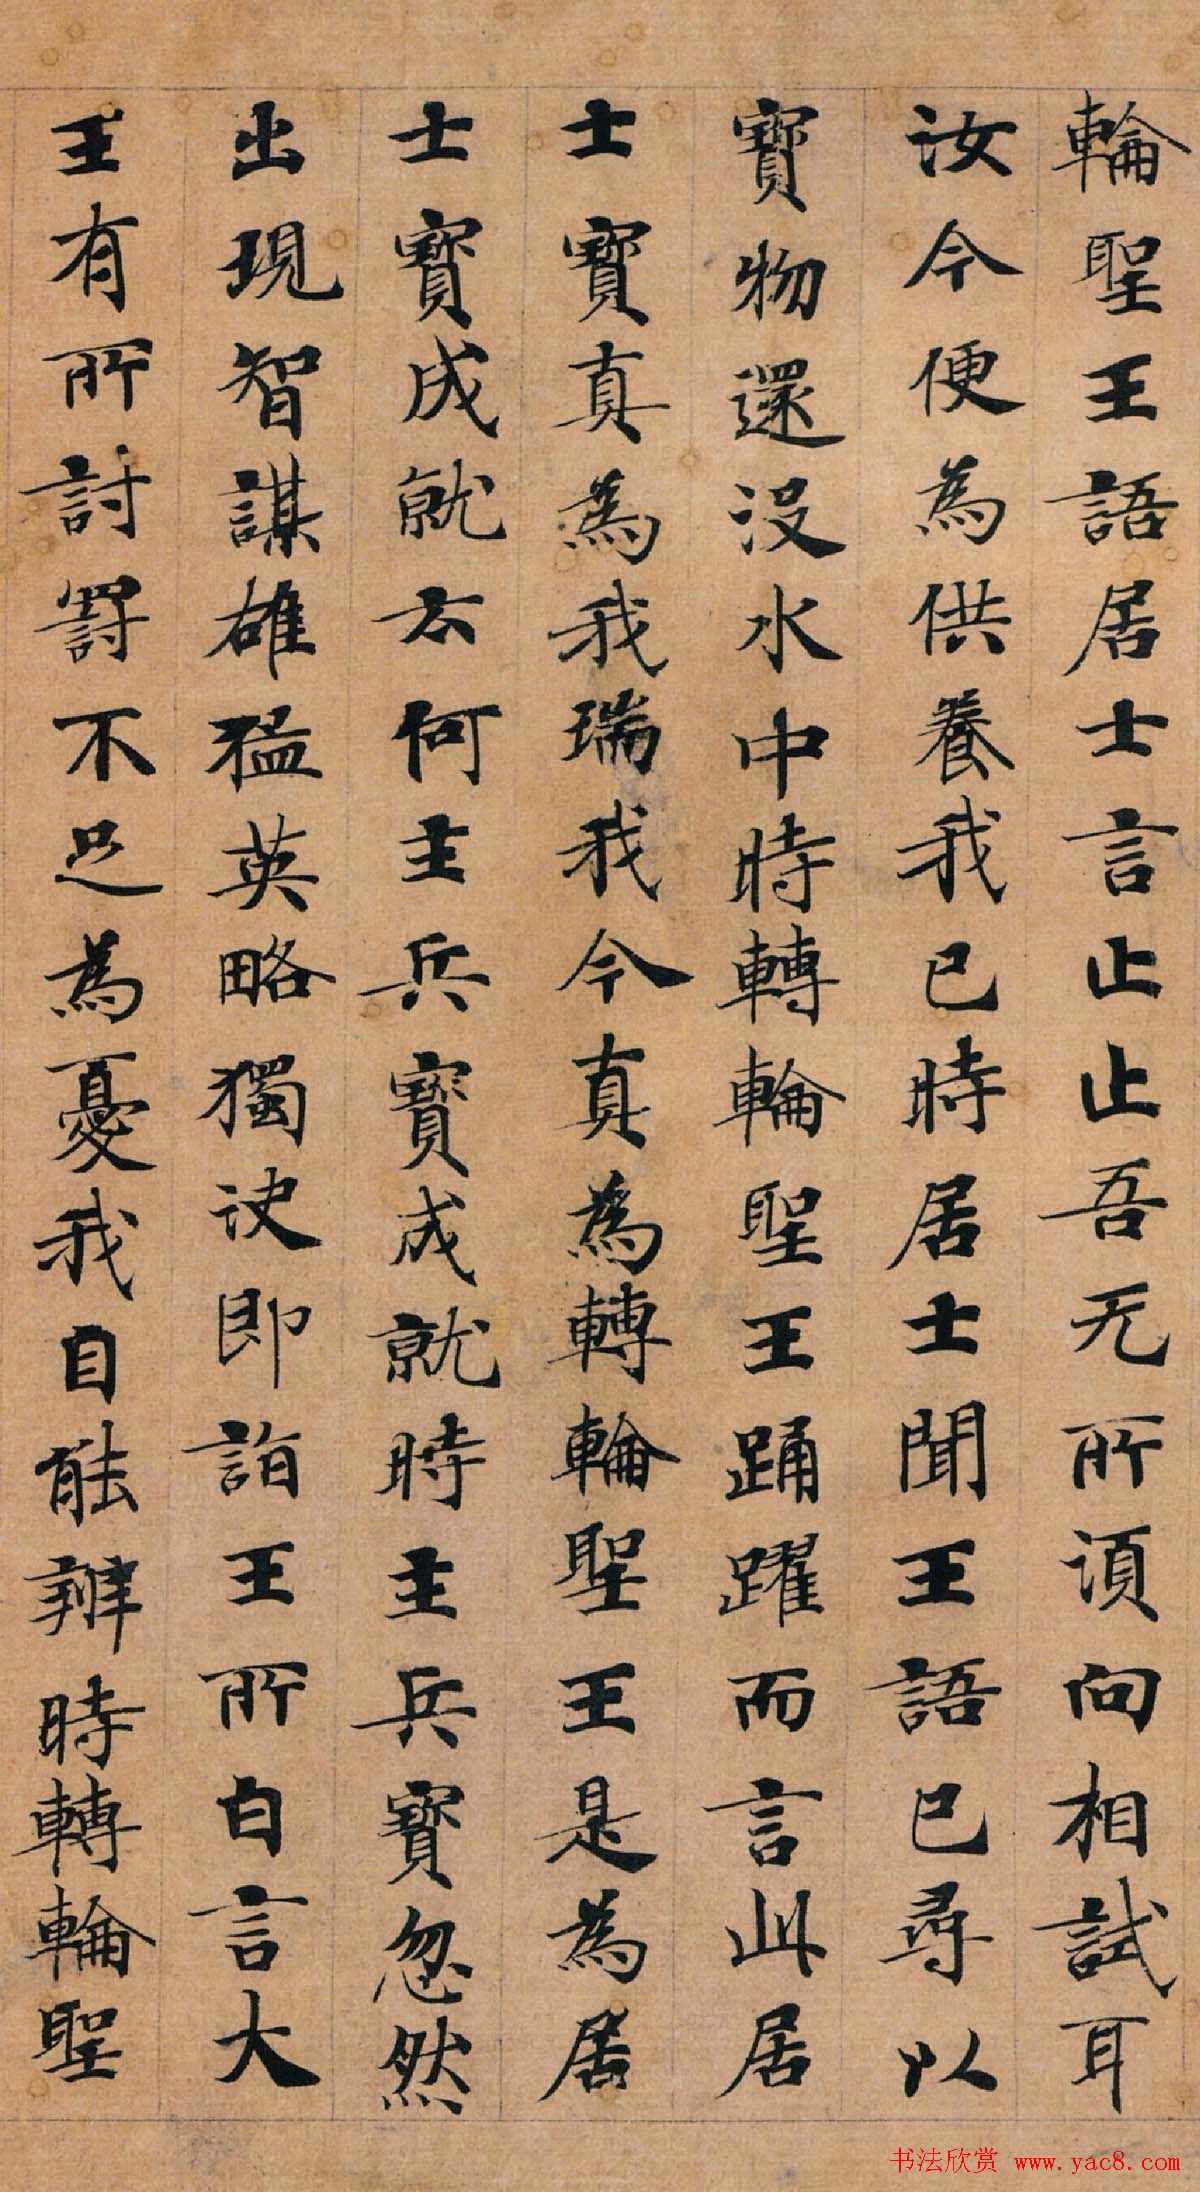 輪聖王語居士言止止吾无所湏向相試耳
汝今便為供養我已時居士聞王語已尋以
寶物還没水中時轉輪聖王踊躍而言此居
士寶真為我瑞我今真為轉輪聖王是為居
士寶成就云何主兵寶成就時主兵寶忽然
出現智謀雄猛英略獨决即詣王所白言大
王有所討罸不足為憂我自能辦時轉輪聖
书法欣赏 www.yac8.com